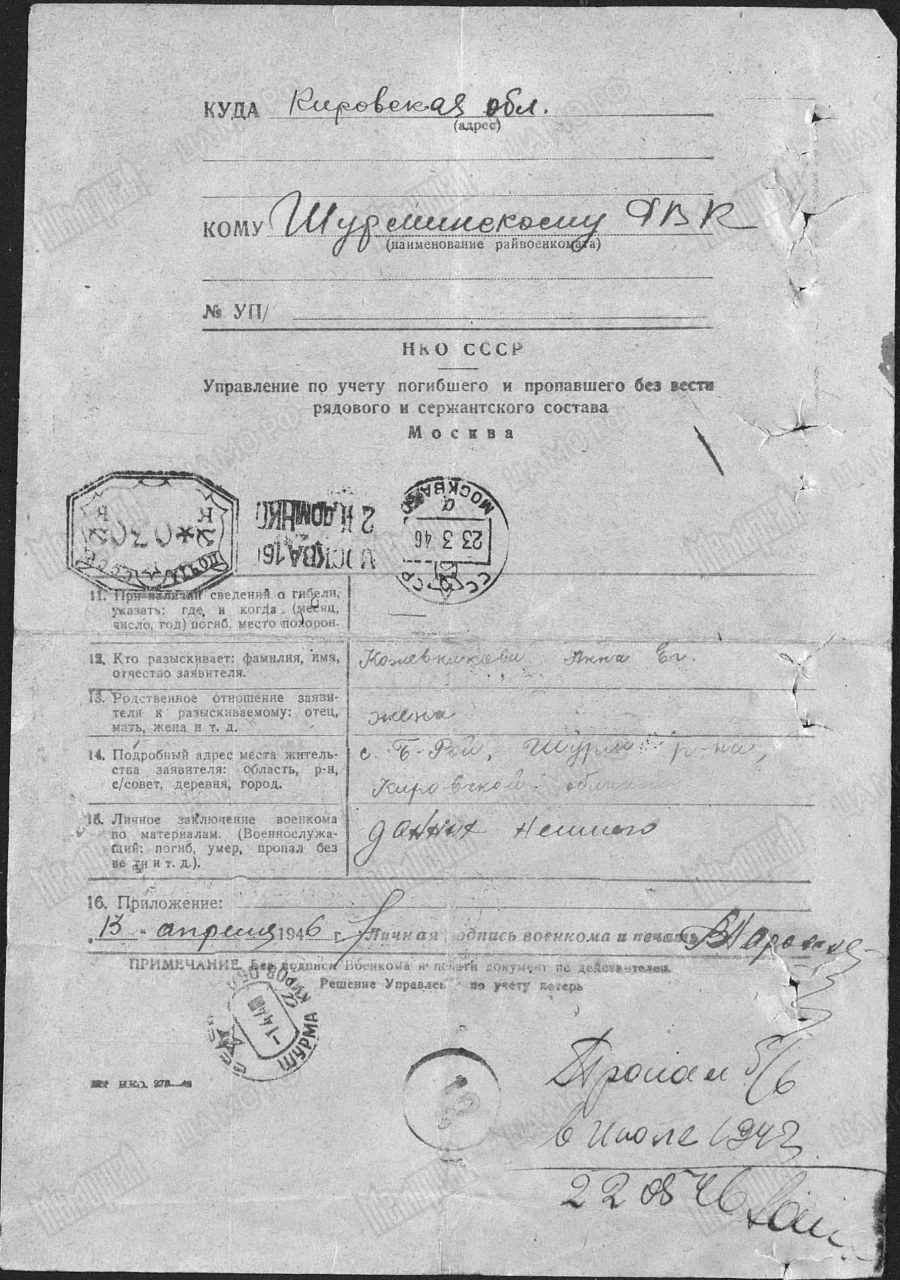 КУДА Кировская обл.
(адрес)
КОМУ Шурминскому РВК
(наименование райвоенкомата)
№ УП/
НКО СССР
Управление по учету погибшего и пропавшего без вести
рядового и сержантского состава
Москва
ПОЧТА СССР
*030
МОСКВА 160
2 й ДОМ НКО
МОСКВА
23 3 46
СССР
11. При наличии сведений о гибели,
указать: где, и когда (месяц,
число, год) погиб. место похорон.
—
12. Кто разыскивает: фамилия, имя,
отчество заявителя.
Кожевникова Анна Ег.
13. Родственное отношение заяви-
теля к разыскиваемому: отец,
мать, жена и т. д.
жена
14. Подробный адрес места житель-
ства заявителя: область, р-н,
с/совет, деревня, город.
с. Б-Рой, Шурм р-на,
Кировской области
15. Личное заключение военкома
по материалам. (Военнослужа-
щий: погиб, умер, пропал без
вести и т. д.).
данных
16. Приложение:
"13" апреля 1946 г. Личная подпись военкома и печать
ПРИМЕЧАНИЕ. Без подписи военкома и печати документ не действителен.
Решение Управления по учету потерь
ШУРМА КИРОВ. ОБЛ.
НКО.
Пропал б/в
в июле 1943
22 05 46